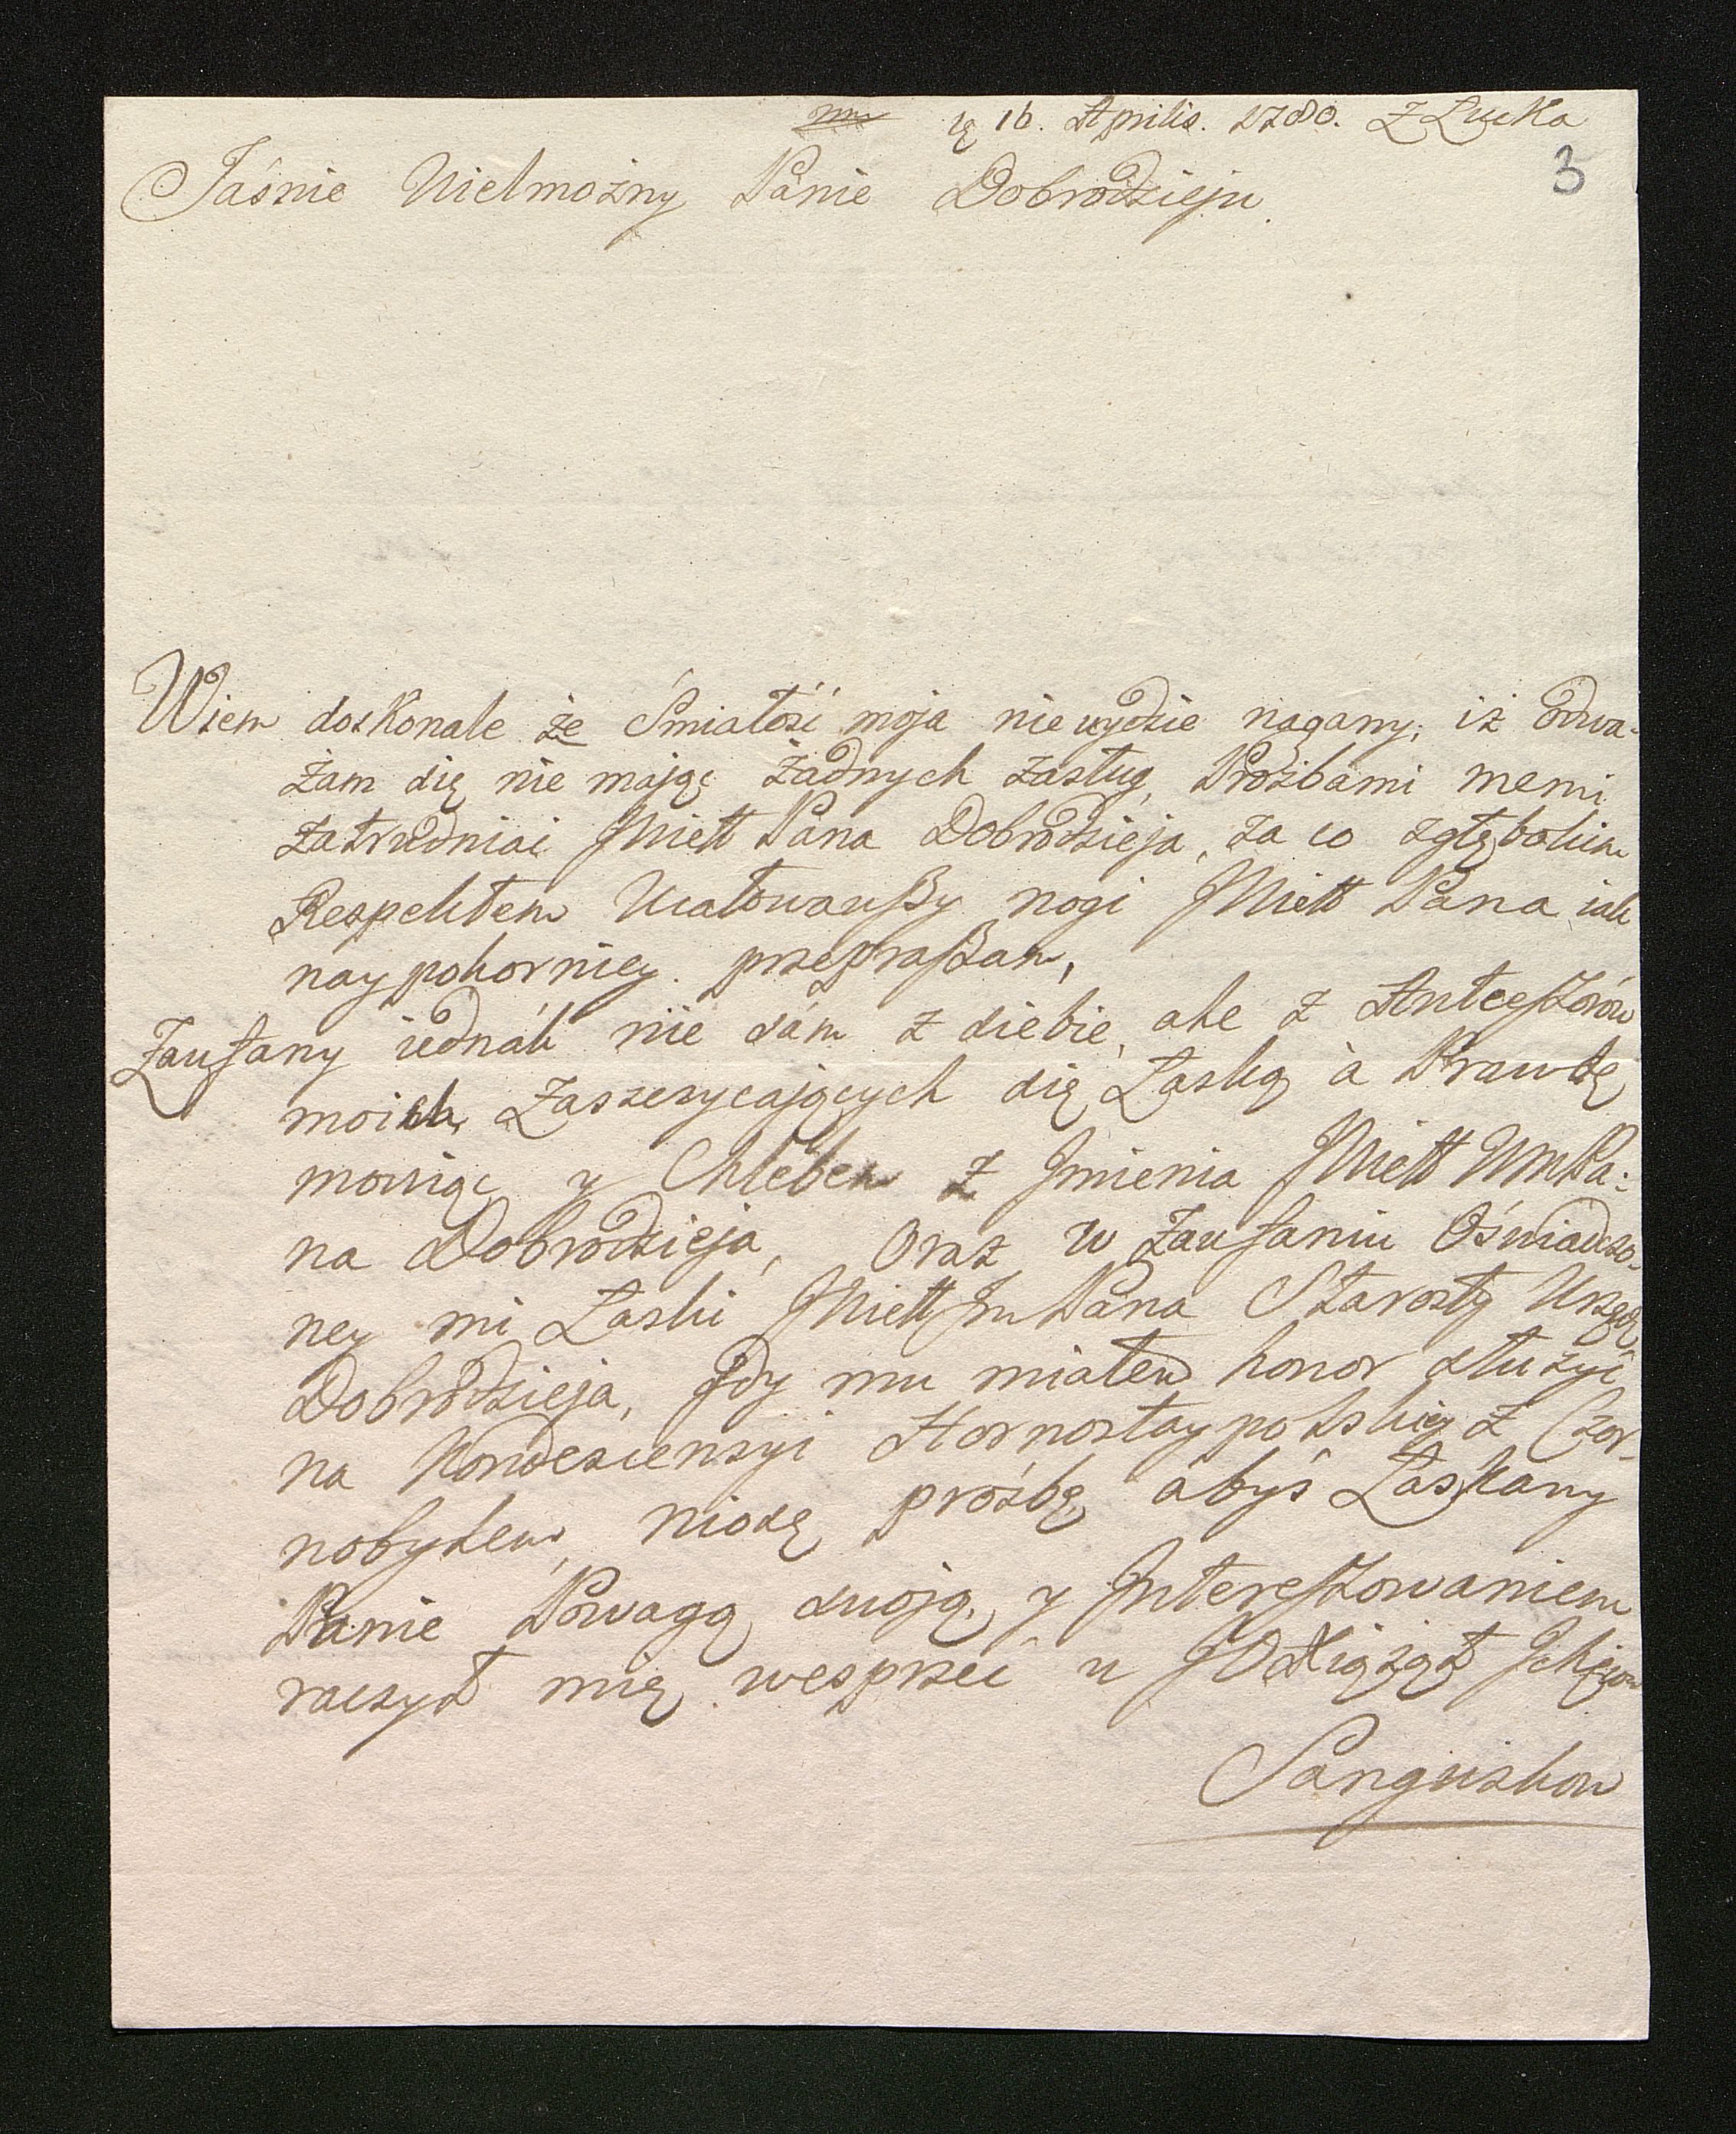 16. Aprilis. 1780. Z Łucka
3
Jaśnie Wielmożny Panie Dobrodzieju
Wiem doskonale że Śmiałość moja nie uydzie nagany, iż odwa-
żam się nie mając żadnych zasług, Prośbami memi
zatrudniać JWiell Pana Dobrodzieja, za co z głębokim
Respektem Ucałowawszy nogi JWiell Pana iak
naypokorniey przepraszam,
Zaufany iednak nie sám z siebie, ale z Antecessorów
moich, zaszczycających się Łaską à Prawdę
mowiąc y Chlebem z Jmienia JWiell WmPa-
na Dobrodzieja, Oraz w zaufaniu Oświadczo-
ney mi Łaski JWiell Jm Pana Starosty Urzęd
Dobrodzieja, gdy mu miałem honor służyć
na Kondescensyi Hornostaypolskiey z Czor-
nobylem, niosę prośbę abyś Łaskawy
Panie Powagą swoją, y Interessowaniem
raczył mię wesprzeć u JO Xiążąt
Sanguszkow